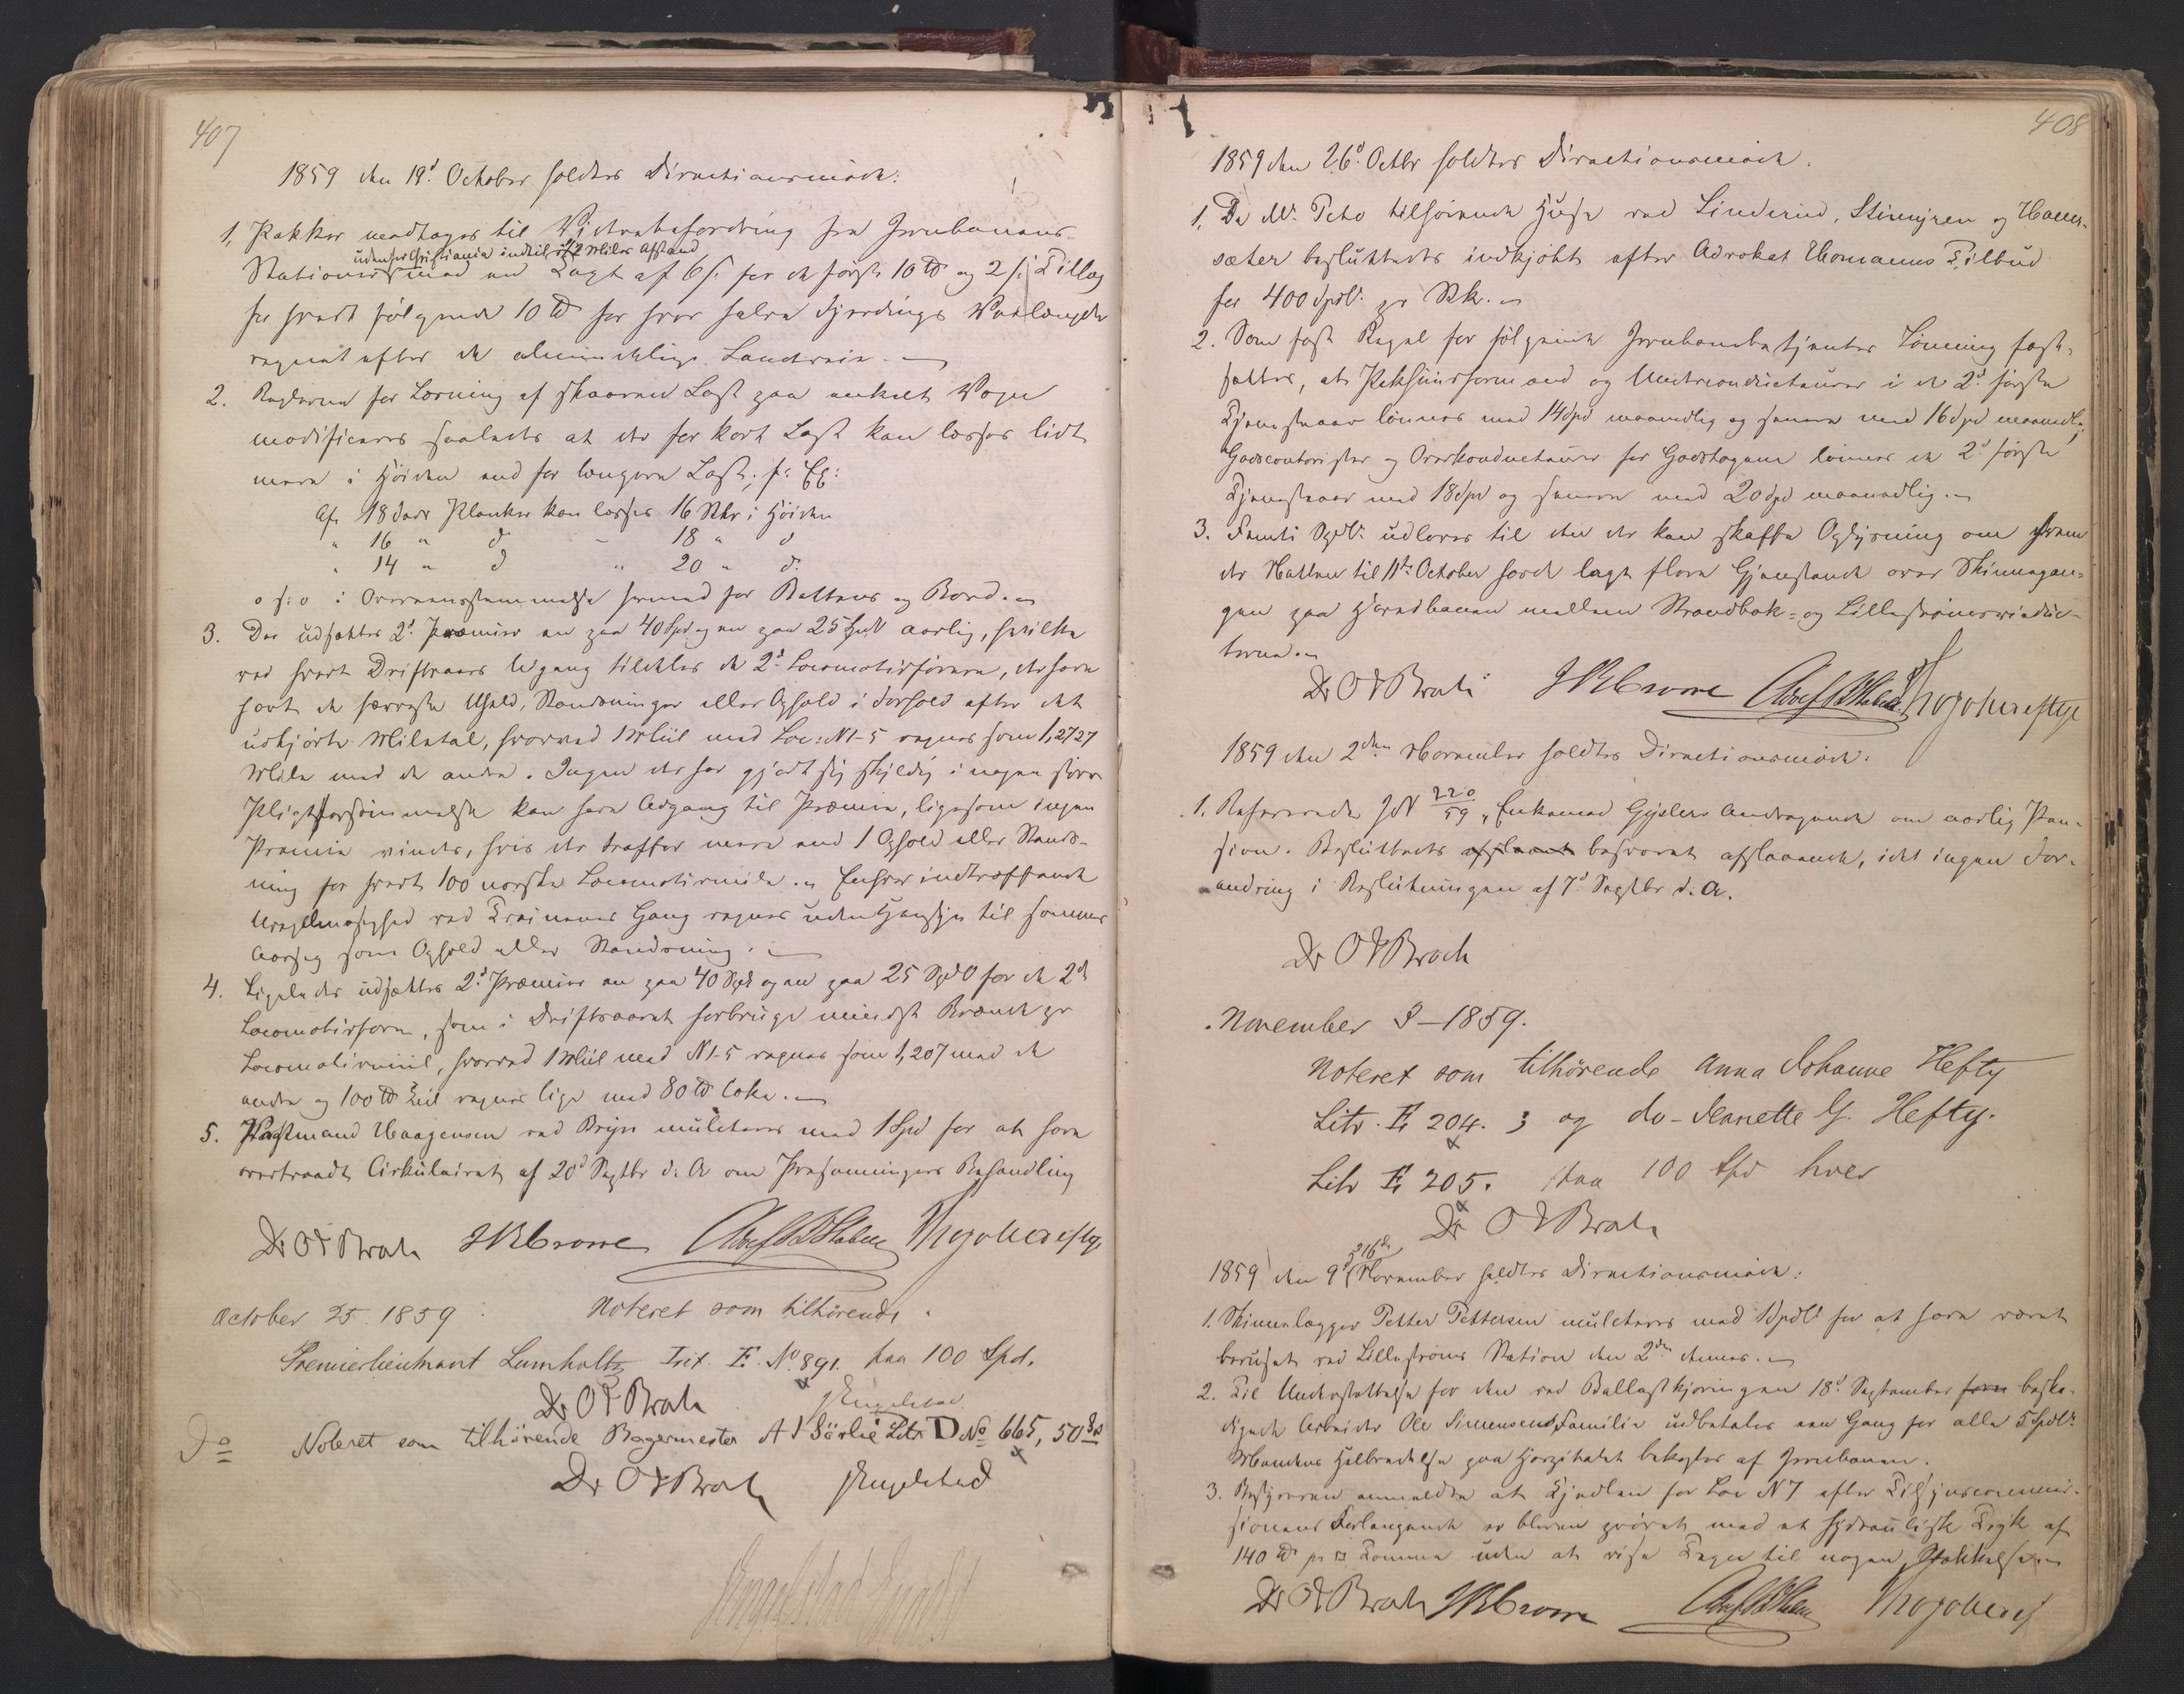 407
1859 den 19d October holdtes Directionsmøde:
1, Pakker modtages til Viderebefordring fra Jernbanens
udenfor Christiania indtil 1/2 Miles Afstand
Stationer mod en Lagt af 6 s. for de første 10 ℔ og 2 s. Tillæg
for hvert følgende 10 ℔ for hver halve Fjerdings Veilængde
regnet efter de almindelige Landveie.
2. Reglerne for Læsning af skaaren Last paa enkelt Vogn
modificeres saaledes at der for kort Last kan læsses lidt
mere i Høiden end for længere Last; f: Ex:
Af 18 Fods Planker kan læsses 16 Stkr i Høiden
" 16 " d - 18 " d
" 14 " d " 20 " d.
o s: v i Overensstemmelse hermed for Battens og Bord.
3. Der udsættes 2d Præmier en paa 40 Spd og en paa 25 Spdl aarlig, hvilke
ved hvert Driftsaars Udgang tildeles de 2d Locomotivførere, der have
havt de færreste Uheld, Standsninger eller Ophold i Forhold efter det
udkjørte Miletal, hvorved 1 Miil med Loc: N 1-5 regnes som 1,2727
Mile med de andre. Ingen der har gjort sig skyldig i nogen større
Pligtforsømmelse kan have Adgang til Præmie, ligesom ingen
Præmie vindes, hvis der træffer mere end 1 Ophold eller Stands-
ning for hvert 100 norske Locomotivmile. Enhver indtræffende
Uregelmæssighed ved Trainenes Gang regnes uden Hensyn til sammes
Aarsag som Ophold eller Standsning.
4. Ligeledes udsættes 2d Præmier en paa 40 Spd og en paa 25 Spd for de 2de
Locomotivførere, som i Driftsaaret forbruge mindst Brænde pr
Locomotivmiil, hvorved 1 Miil med N 1-5 regnes som 1,207 med de
andre og 100 ℔ Kul regnes lige med 80 ℔ Coke.
5. Vagtmand Haagensen ved Bryn mulcteres med 1 Spd for at have
overtraadt Cirkulairet af 20d Septbr d. A om Præsenningers Behandling
Dr O J Broch H R Crowe Th Joh Heftye
October 25. 1859 : Noteret som tilhørende.
Premierlieutnant Lumholtz Litr. E. No 891. paa 100 Spd.
Dr O J Broch Engelstad
Do Noteret som tilhørende Bagermester A J Sörlie Litr D No 665, 50 Sp
Dr O J Broch Engelstad
408
1859 den 26d Octbr holdtes Directionsmøde.
1. De Mr. Peto tilhørende Huse ved Linderud, Stimyren og Haver-
sæter besluttedes indkjøbt efter Advokat Homanns Tilbud
for 400 Spdl. pr Stk.
2. Som fast Regel for følgende Jernbanebetjentes Lønning fast-
sættes, at Pakhuusformænd og Underconducteurer i de 2d første
Tjenesteaar lønnes med 14 Spd maanedlig og senere med 16 Spd maanedlig.
Godscontorister og Overkonducteurer for Godstogene lønnes de 2d første
Tjenesteaar med 18 Spd og senere med 20 Spd maanedlig.
3. Femti Spdl: udloves til den der kan skaffe Oplysning om hvem
der Natten til 11te October havde lagt flere Gjenstande over Skinnegan-
gen paa Hovedbanen mellem Strandbak- og Lillestrømsviaduc-
terne.
Dr O J Broch H R Crowe Th Joh Heftye
1859 den 2den November holdtes Directionsmøde:
1. Refereredes J N 220/59, Enkemad Gyslers Andragende om aarlig Pen-
sion. Besluttedes afslaaet besvaret afslaaende, idet ingen For-
andring i Beslutningen af 7d Septbr d. A.
Dr O J Broch
November 8 - 1859.
Noteret som tilhørende Anna Johanne Hefty
Litr. E 204. 3 og do - Nanette G. Hefty.
Litr E 205. paa 100 Spd hver
Dr O J Broch
216d
1859 den 9d November holdtes Directionsmøde:
1. Skinnelægger Petter Pettersen mulcteres med 1 Spdl for at have været
beruset ved Lillestrøms Station den 2den dennes.
2. Til Understøttelse for den ved Ballastkjøringen 18d September beska-
digede Arbeider Ole Simensens Familie udbetales een Gang for alle 5 Spdlr
Mandens Helbredelse paa Hospitalet bekostes af Jernbanen.
3. Bestyreren anmeldte at Kjedlen for Loc N 7 efter Tilsynscommis-
sionens Forlangende er bleven prøvet med et hydraulisk Tryk af
140 ℔ pr □ Tomme uden at vise Tegn til nogen Svækkelse.
Dr O J Broch H R Crowe Th Joh Heftye